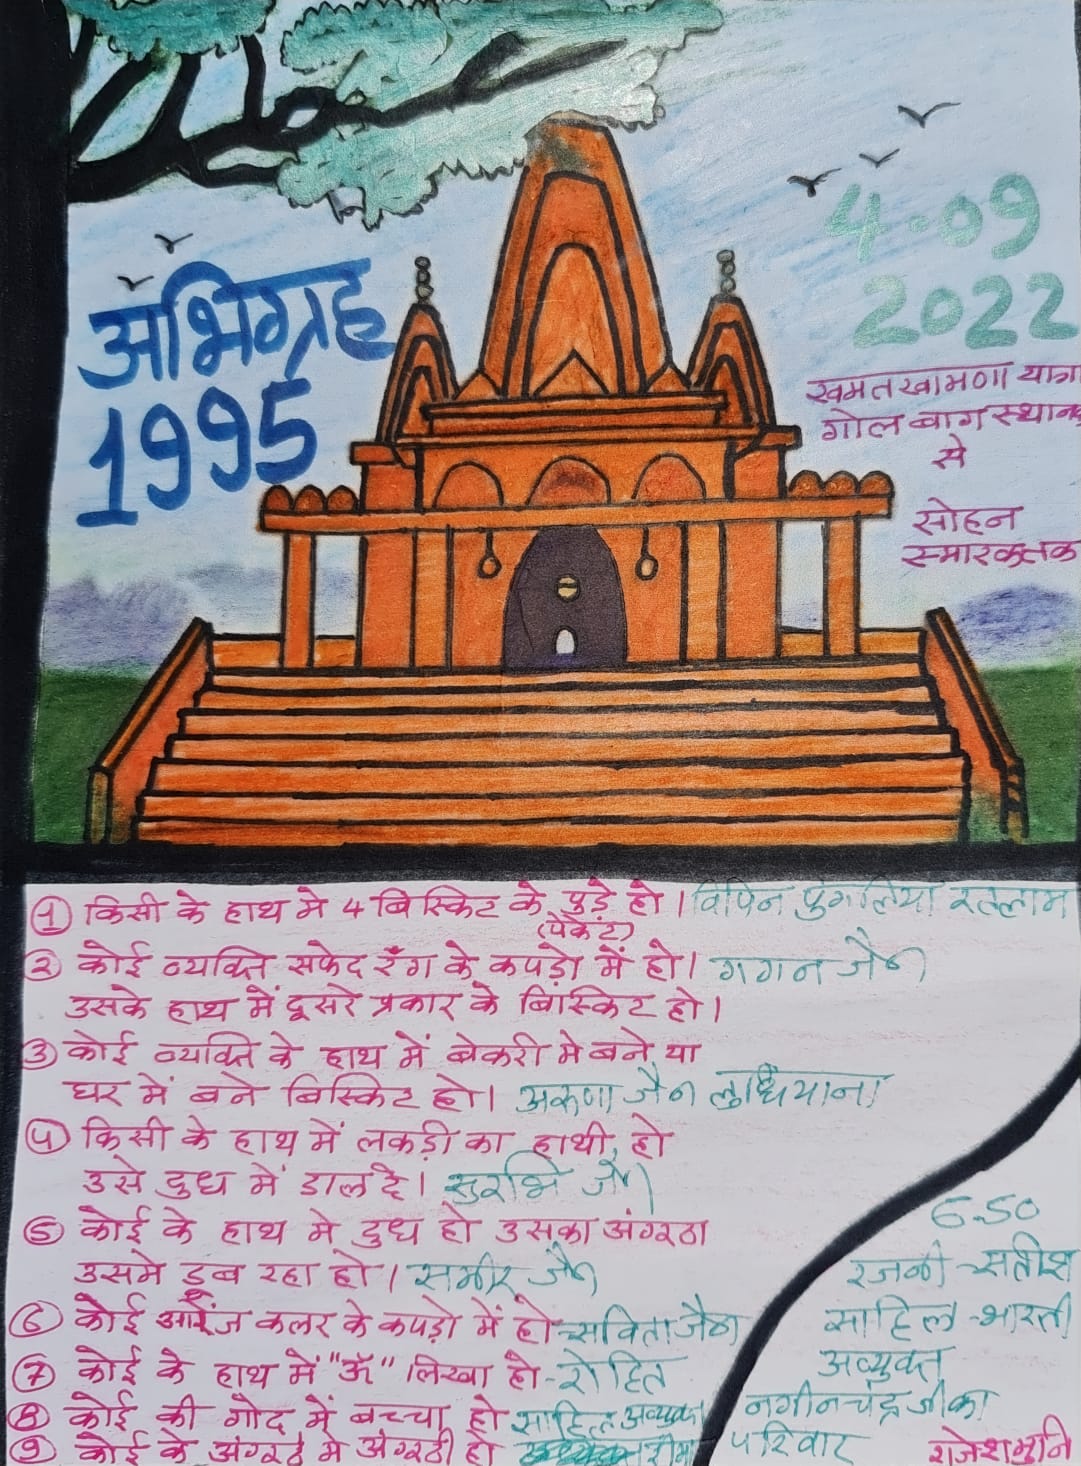 अभिग्रह
1995
4-09
2022
खमतखामणा यात्रा
गोल बाग स्थानक
से
सोहन
स्मारक तक
① किसी के हाथ मे 4 बिस्किट के पुड़े हो । विपिन पुंगलिया रतलाम
(पैकेट)
② कोई व्यक्ति सफेद रँग के कपड़ो में हो। गगन जैन
उसके हाथ में दूसरे प्रकार के बिस्किट हो।
③ कोई व्यक्ति के हाथ में बेकरी मे बने या
घर में बने बिस्किट हो। अरुणा जैन लुधियाना
④ किसी के हाथ में लकड़ी का हाथी हो
उसे दुध में डाल दे। सुरभि जैन
⑤ कोई के हाथ मे दुध हो उसका अंगूठा
उसमे डूब रहा हो। समीर जैन
⑥ कोई आरेंज कलर के कपड़ो में हो - सविता जैन
⑦ कोई के हाथ में "ॐ" लिखा हो - रोहित
⑧ कोई की गोद में बच्चा हो साहिल अव्युक्त
⑨ कोई के अंगूठे मे अंगूठी हो
6.50
रजनी - सतीश
साहिल - भारती
अव्युक्त
नगीनचंद्र जी का
परिवार
राजेशमुनि